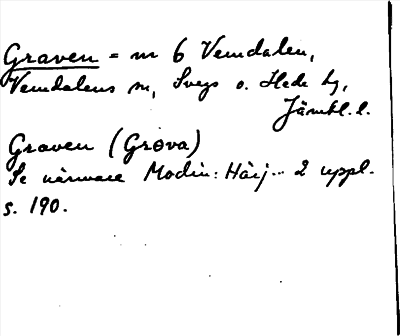 Graven = nr 6 Vemdalen,
Vemdalens sn, Svegs o. Hede tg,
Jämtl. l.
Graven (Grøva)
Se närmare Modin: Härj... 2 uppl.
s. 190.